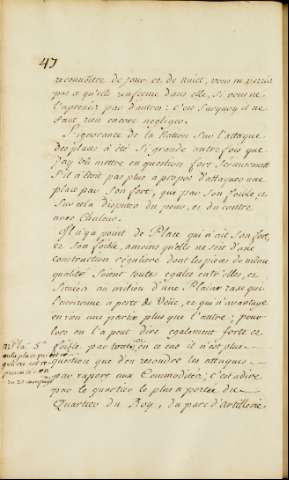 47
reconnoitre de jour et de nuict, vous ne verrez
pas a qu'elle renferme dans elle, si vous ne
l'aprenez par d'autres: c'est pourquoy il ne
faut rien encore negliger.
L'ignorance de la Nation sur l'attaque
des places a été si grande autre fois que
J'ay oüi mettre en question fort serieusement
S'il n'étoit pas plus a propos d'attaquer une
place par son fort, que par son foible, et
sur cela disputer du pour, et du contre
avec chaleur.
Il n'y a point de Place qui n'ait son fort,
et son foible, amoins qu'elle ne soit d'une
construction reguliere dont les pieces de même
qualité soient toutes egales entr'elles, et
située au milieu d'une Plaine rase qui
l'environne a perte de Veüe, et qui n'avantage
en rien une partie plus que l'autre: pour
lors on l'a peut dire egalement forte et
foible par tout; en ce cas il n'est plus
question que d'en resoudre les attaques
par raport aux Commoditez; c'est adire
par le quartier le plus a portée du
Quartier du Roy, du parc d'artillerie